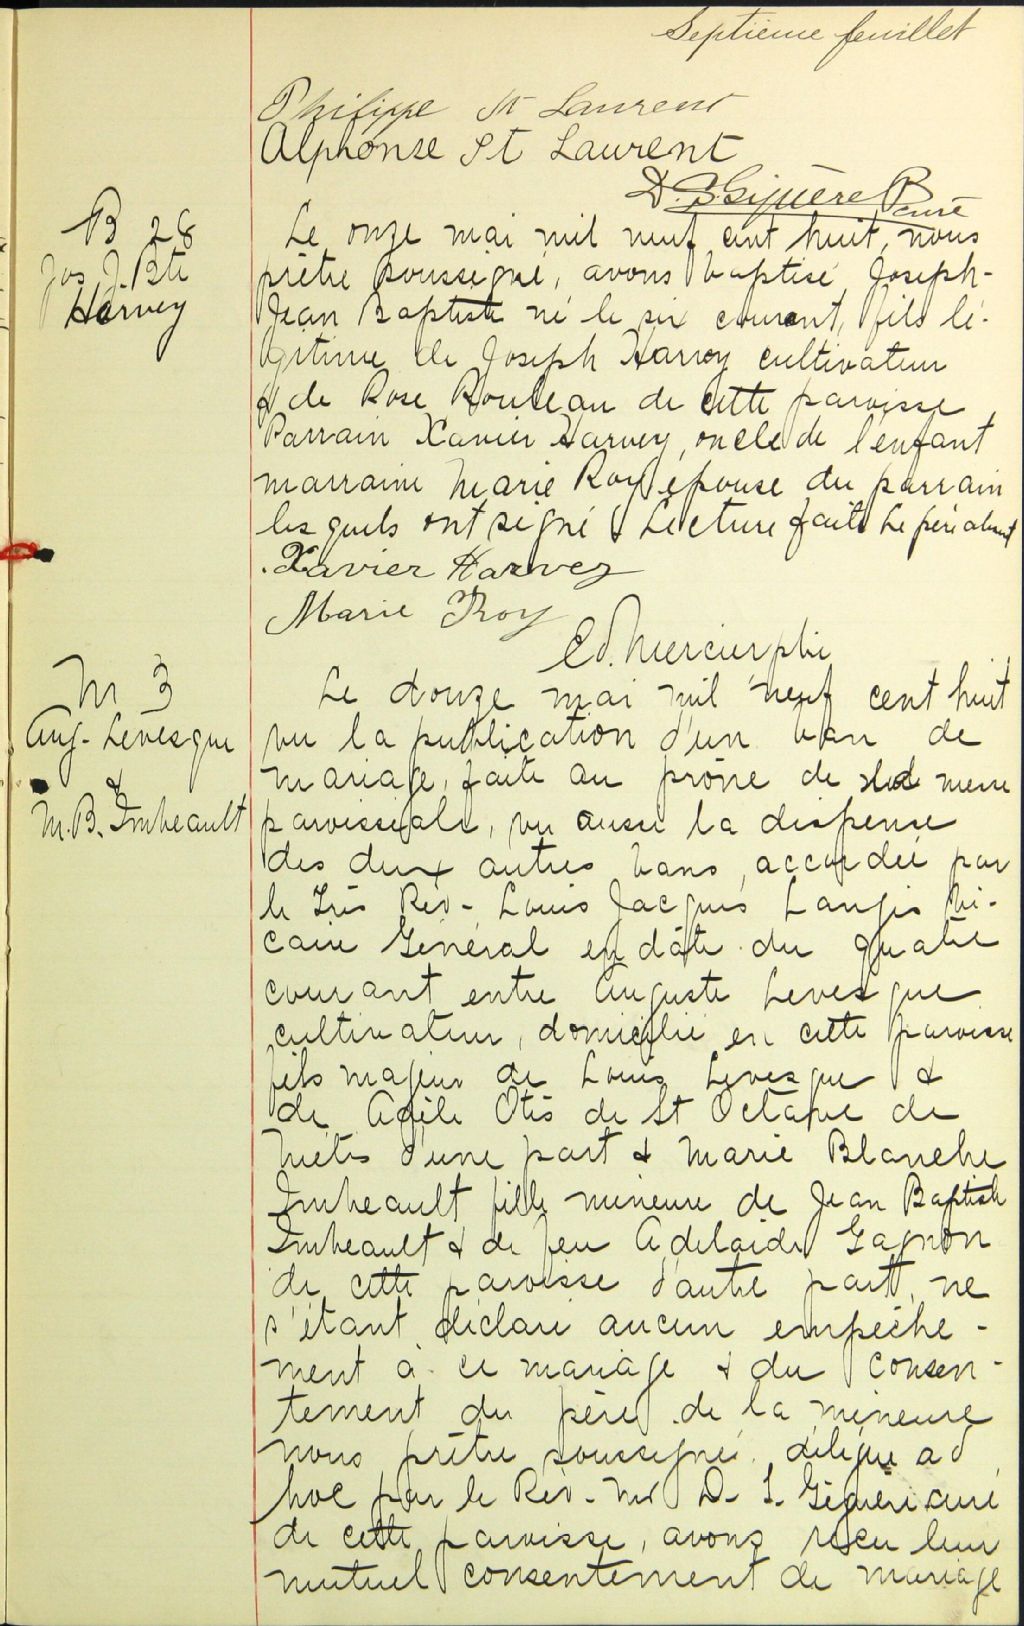 Septième feuillet
Philippe St Laurent
Alphonse St Laurent
D. S. Giguère Ptre curé
B 28
Jos. J. Bte
Harvey
Le onze mai mil neuf cent huit, nous
prêtre soussigné, avons baptisé Joseph-
Jean Baptiste né le six courant, fils lé-
gitime de Joseph Harvey cultivateur
& de Rose Rouleau de cette paroisse
Parrain Xavier Harvey, oncle de l'enfant
marraine Marie Roy épouse du parrain
lesquels ont signé & Lecture faite Le père absent
Xavier Harvey
Marie Roy
Ed. Mercier ptre
M 3
Aug. Levesque
&
M. B. Imbeault
Le douze mai mil neuf cent huit
vu la publication d'un ban de
mariage, faite au prône de messe
paroissiale, vu aussi la dispense
des deux autres bans, accordée par
le Très Rév. Louis Jacques Langis Vi-
caire Général en dâte du quatre
courant entre Auguste Levesque
cultivateur, domicilié en cette paroisse
fils majeur de Louis Levesque &
de Adèle Otis de St Octave de
Métis d'une part & Marie Blanche
Imbeault fille mineure de Jean Baptiste
Imbeault & de feu Adelaide Gagnon
de cette paroisse d'autre part, ne
s'étant déclaré aucun empêche-
ment à ce mariage & du consen-
tement du père de la mineure
nous prêtre soussigné délégué ad
hoc par le Rév. Mr D. S. Giguère curé
de cette paroisse, avons reçu leur
mutuel consentement de mariage